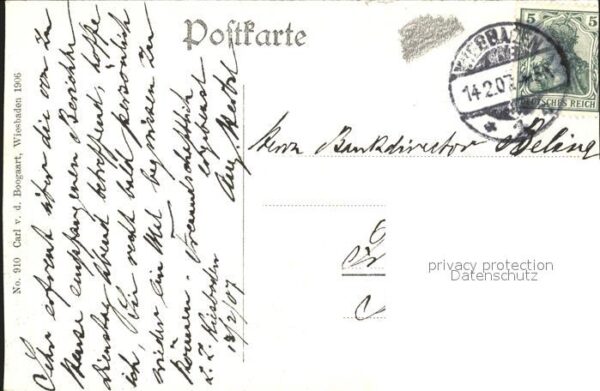 Postkarte
5 5
WIESBADEN
14.2.07
DEUTSCHES REICH
No. 910 Carl v. d. Boogaart, Wiesbaden 1906
Herrn Bankdirector Beling
Sehr erfreut über die von
empfangenen Berichte
Dienstag Abend betreffend, hoffe
ich, Sie recht bald persönlich
wieder ein Mal begrüssen zu
können. Freundschaftlich
ergebenst
Wiesbaden
13/2/07
privacy protection
Datenschutz